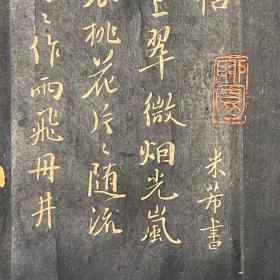 上翠微烟光嵐
桃花片々随流
々作雨飛丹井
米芾書